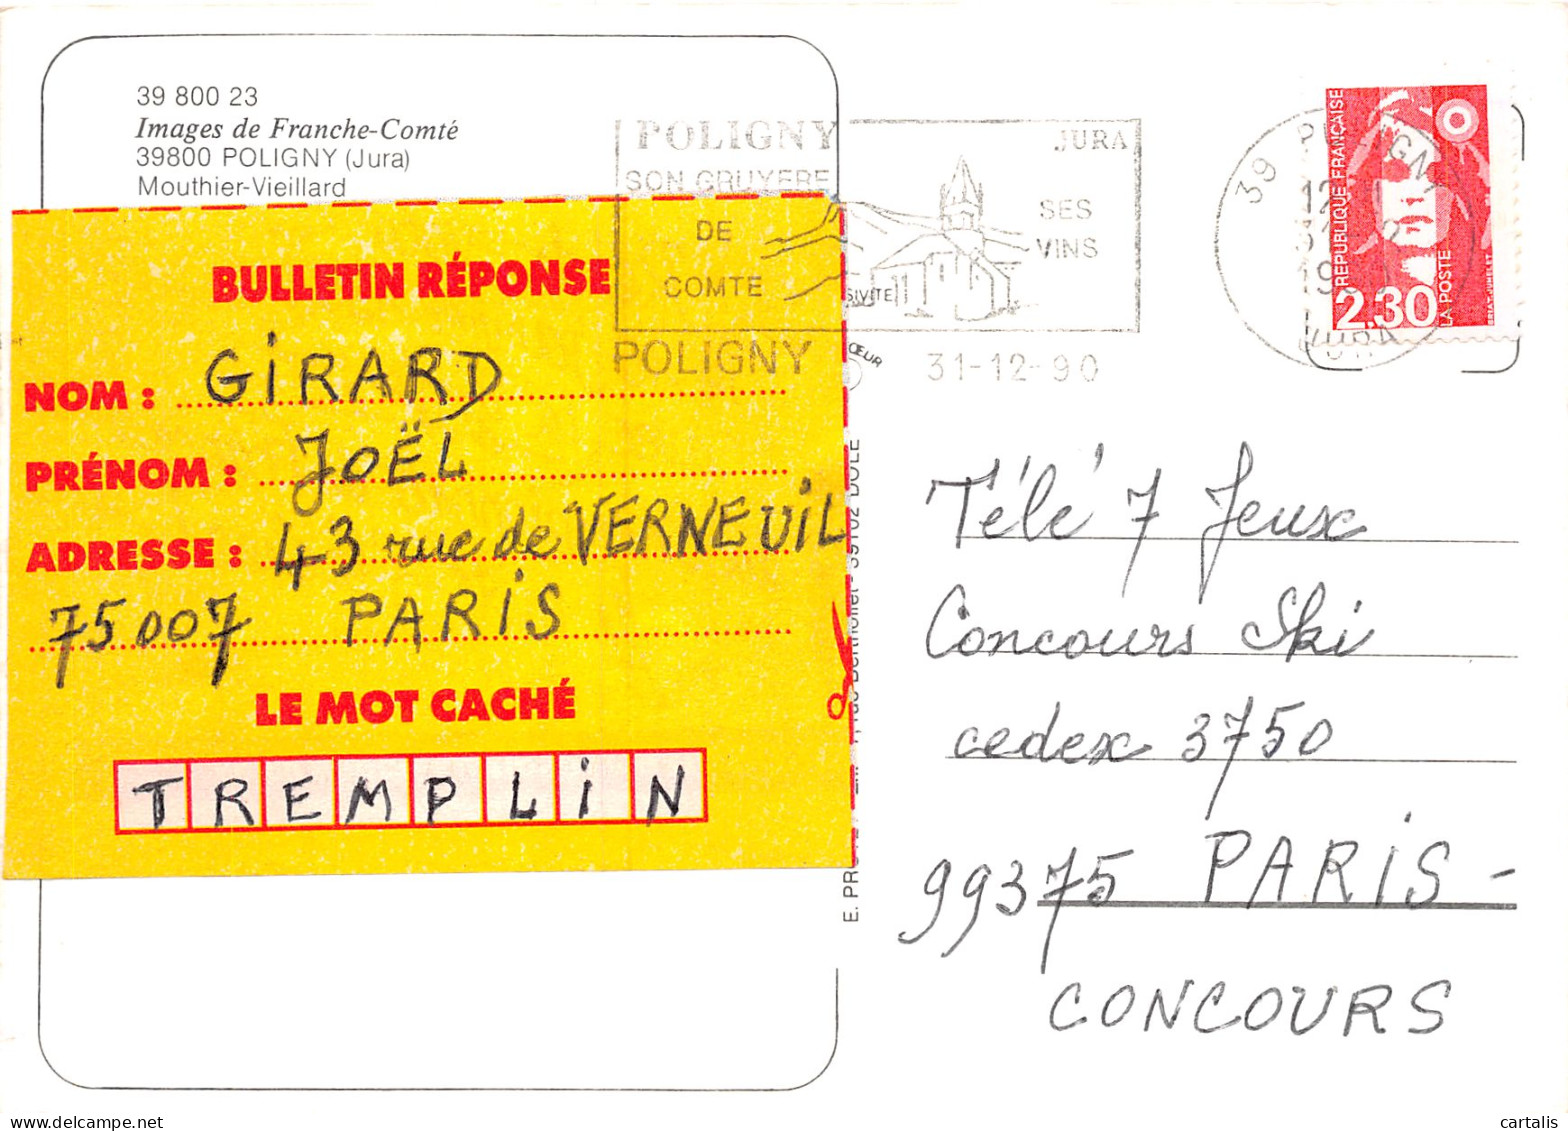 39 800 23
Images de Franche-Comté
39800 POLIGNY (Jura)
Mouthier-Vieillard
BULLETIN RÉPONSE
NOM : GIRARD
PRÉNOM : JOËL
ADRESSE : 43 rue de VERNEUIL
75007 PARIS
LE MOT CACHÉ
TREMPLIN
POLIGNY JURA
SON GRUYERE SES
DE VINS
COMTE
POLIGNY 31-12-90
SIVITE
CŒUR
39102 DOLE
E. PR
39 P IGNY
12
19
JURA
RÉPUBLIQUE FRANÇAISE
2,30
LA POSTE
Télé 7 Jeux
Concours Ski
cedex 3750
99375 PARIS -
CONCOURS
cartalis